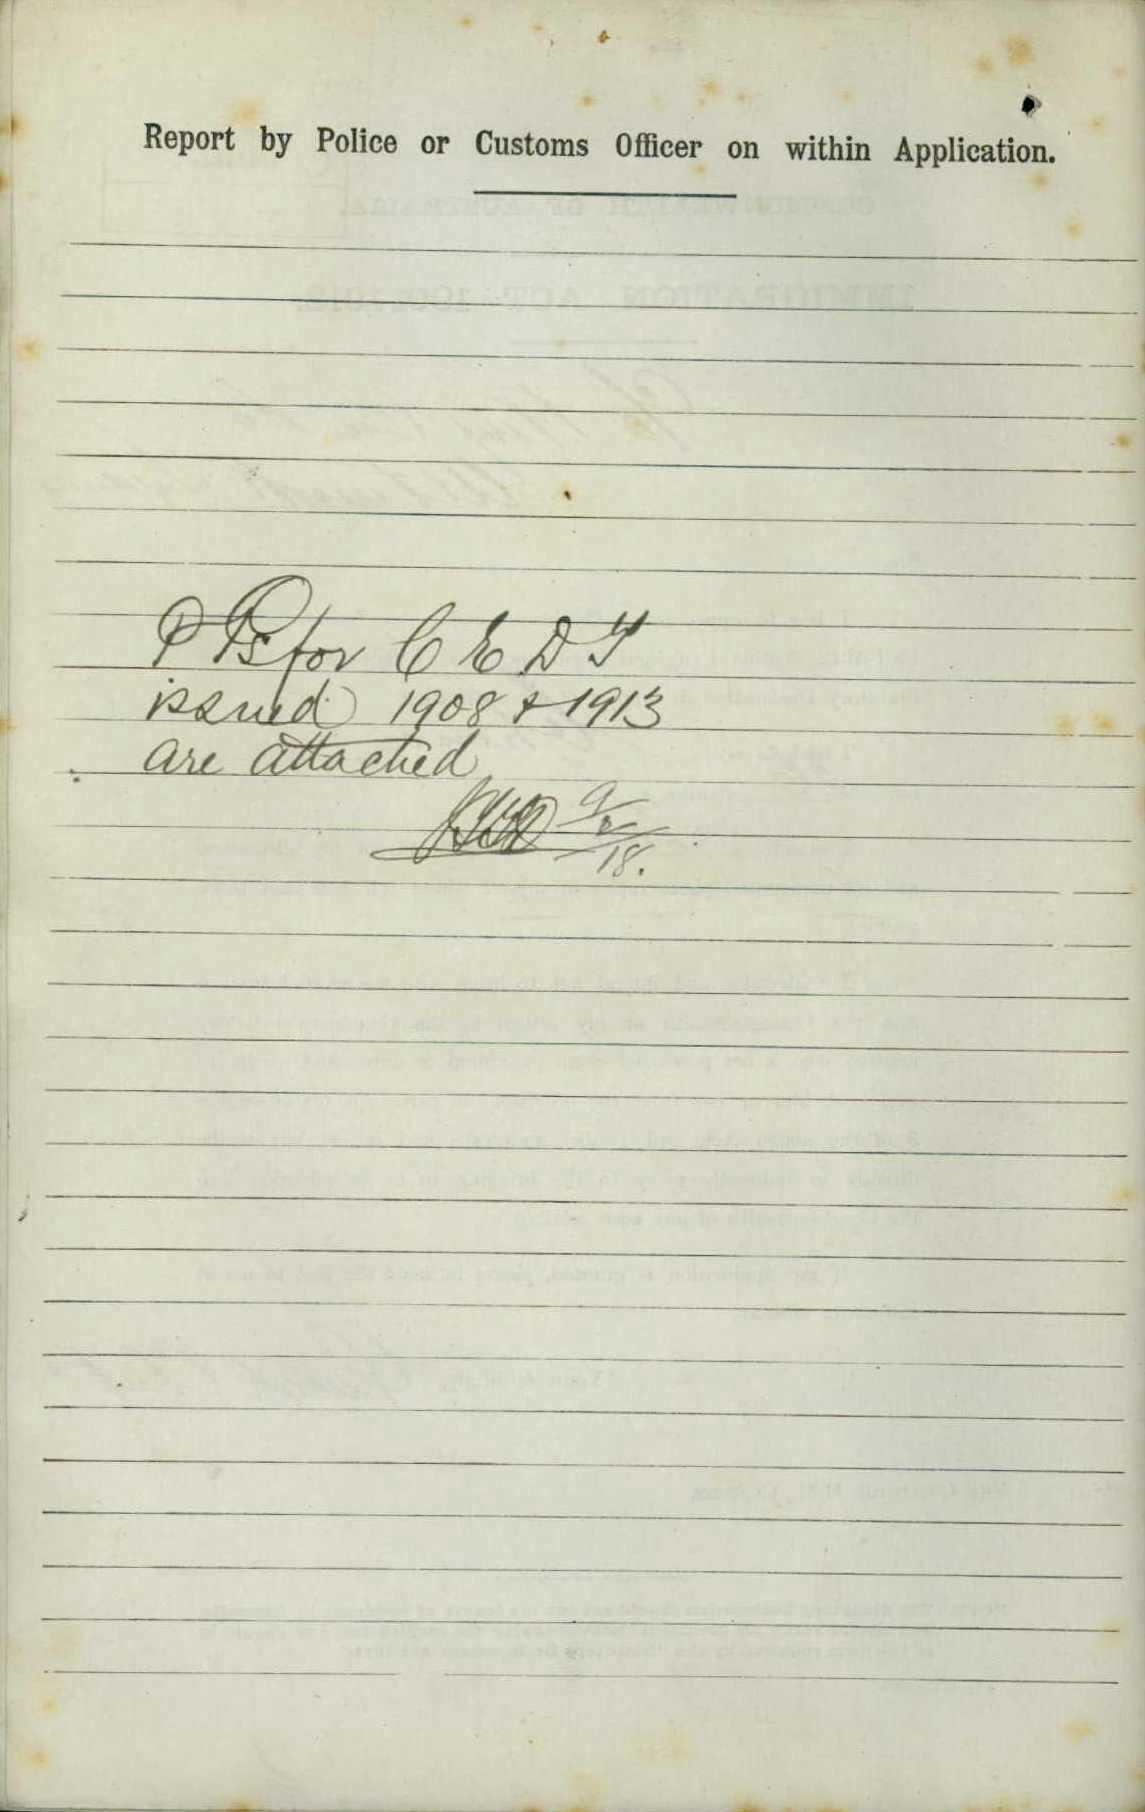 Report by Police or Customs Officer on within Application.
P Ps for C E D T
issued 1908 & 1913
are attached
9/2/18.